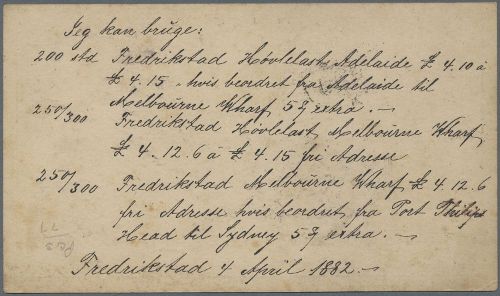 Jeg kan bruge:
200 std Fredrikstad Hövlelast Adelaide £ 4.10 à
£ 4.15 hvis beordret fra Adelaide til
Melbourne Wharf 5% extra. —
250/300 Fredrikstad Hövlelast Melbourne Wharf
£ 4.12.6 à £ 4.15 fri Adresse
250/300 Fredrikstad Melbourne Wharf £ 4.12.6
fri Adresse hvis beordret fra Port Philips
Head til Sydney 5% extra. —
Fredrikstad 4 April 1882. —